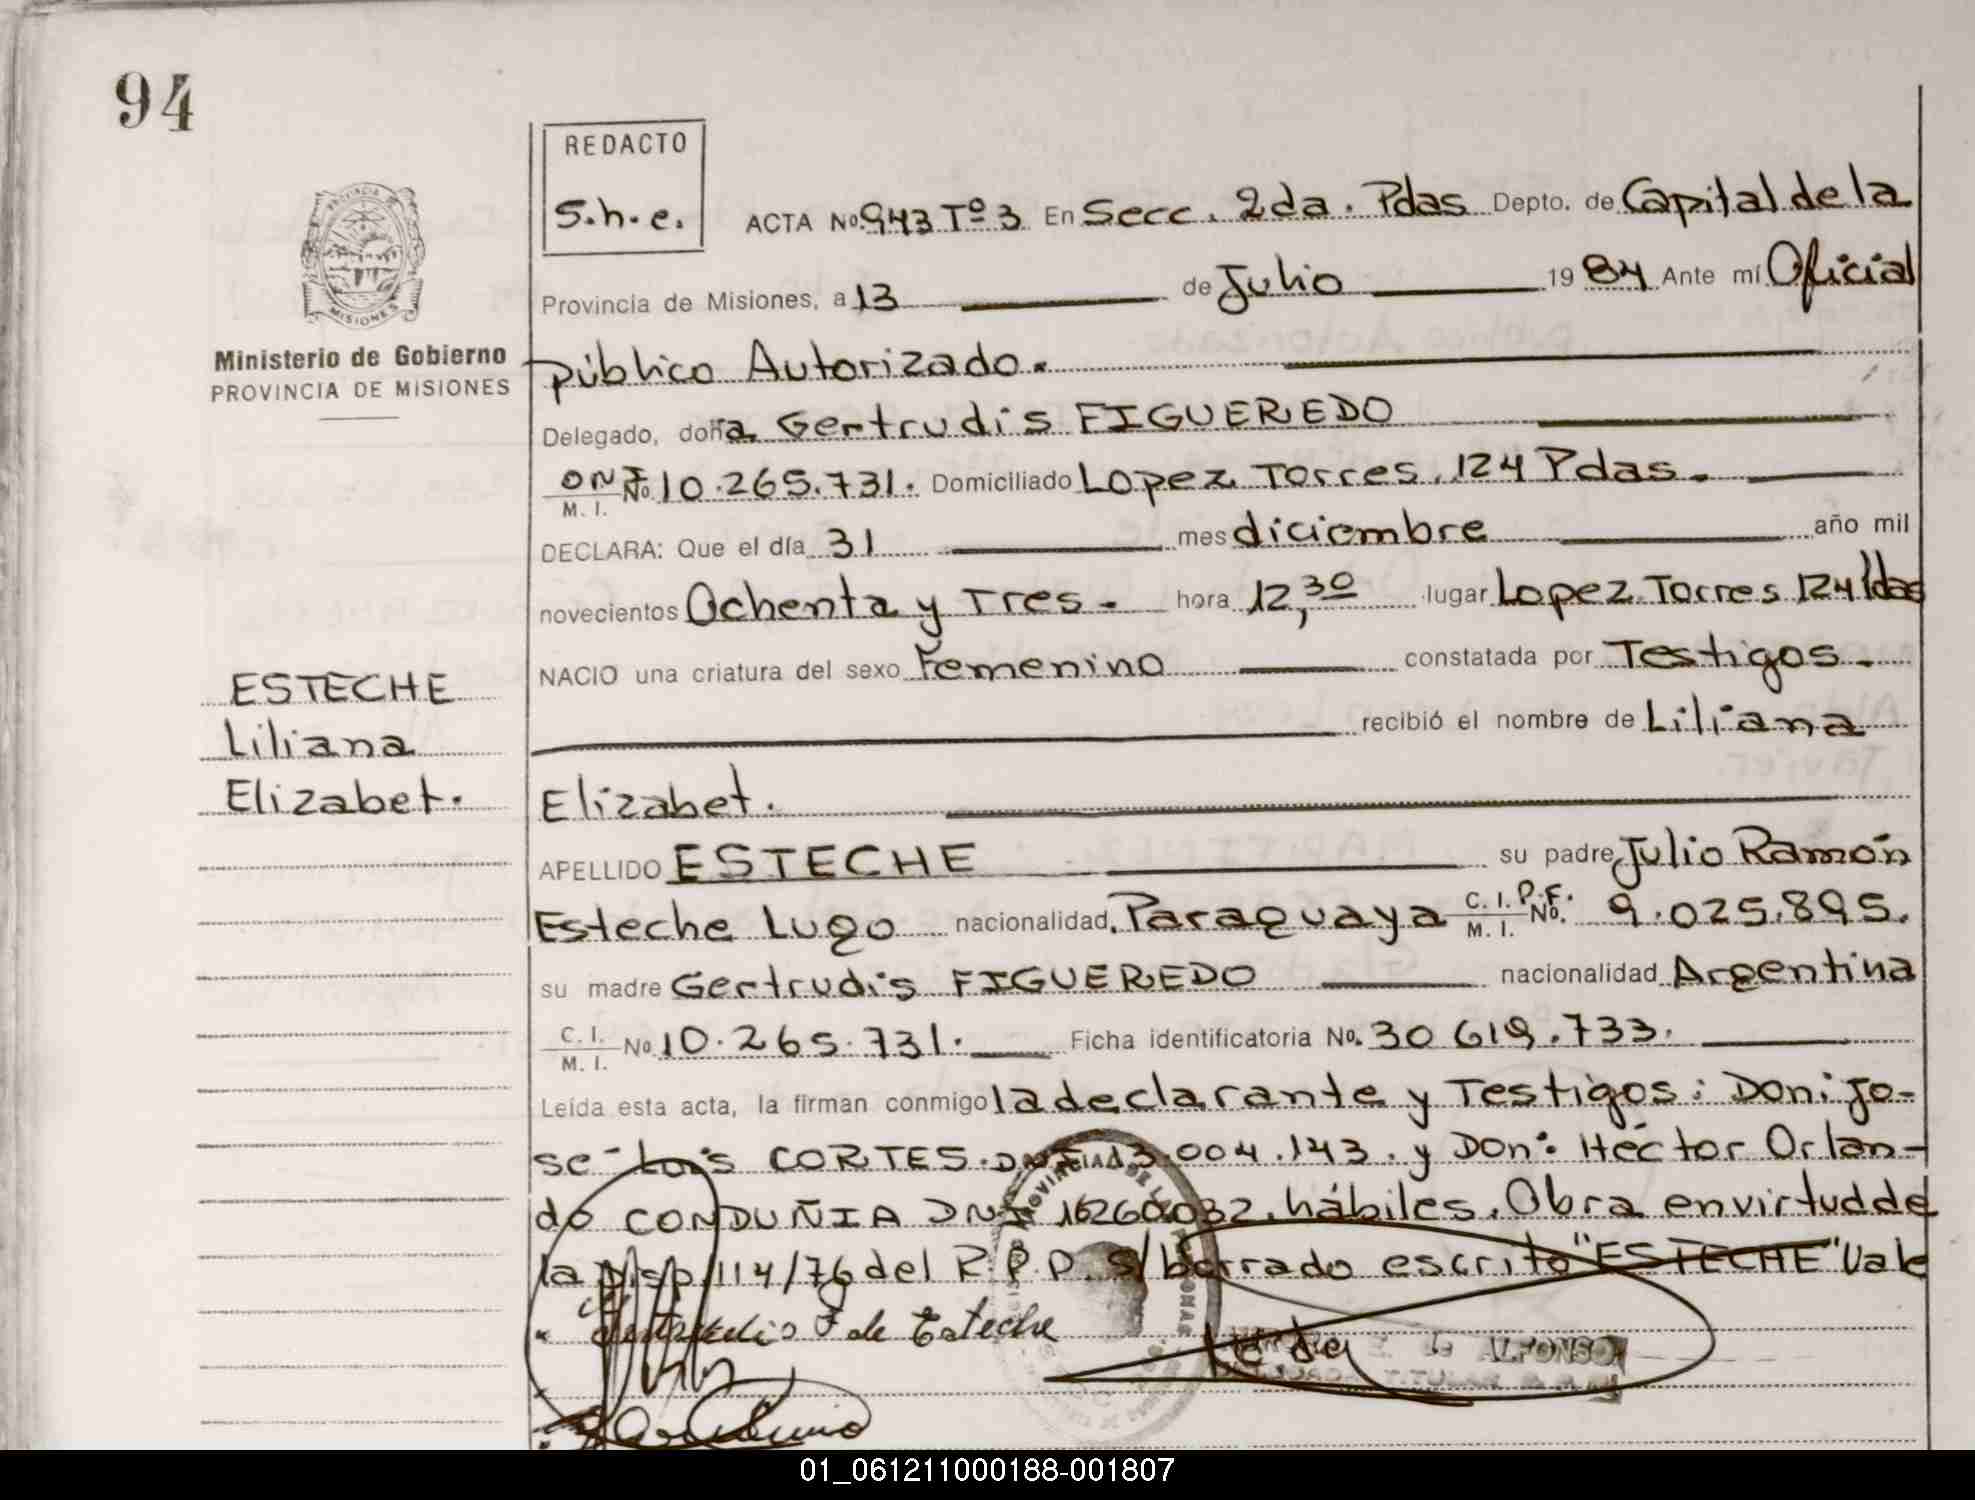 94
REDACTO
S.h.e.
ACTA No. 943 Tº 3 En Secc. 2da. Pdas Depto. de Capital de la
Provincia de Misiones, a 13 de Julio 1984 Ante mí Oficial
PROVINCIA DE
MISIONES
Ministerio de Gobierno
PROVINCIA DE MISIONES
público Autorizado.
Delegado, doña Gertrudis FIGUEREDO
DNI No. 10.265.731. Domiciliado Lopez Torres. 124 Pdas.
M. I.
DECLARA: Que el día 31 mes diciembre año mil
novecientos Ochenta y Tres. hora 12,30 lugar Lopez Torres 124 Pdas
NACIO una criatura del sexo Femenino constatada por Testigos.
ESTECHE
Liliana
Elizabet.
recibió el nombre de Liliana
Elizabet.
APELLIDO ESTECHE su padre Julio Ramón
Esteche Lugo nacionalidad Paraguaya C. I. P.F. No. 9.025.895.
M. I.
su madre Gertrudis FIGUEREDO nacionalidad Argentina
C. I. No 10.265.731. Ficha identificatoria No. 30 619.733.
M. I.
Leída esta acta, la firman conmigo la declarante y Testigos: Don: Jo-
sé Luis CORTES. DNI 13.004.143. y Don: Héctor Orlan-
do CONDUÑIA DNI hábiles. Obra en virtud de
la Disp. 114/76 del R.P.P. s/borrado escrito "ESTECHE" Vale
F de Esteche
de ALFONSO
01_061211000188-001807